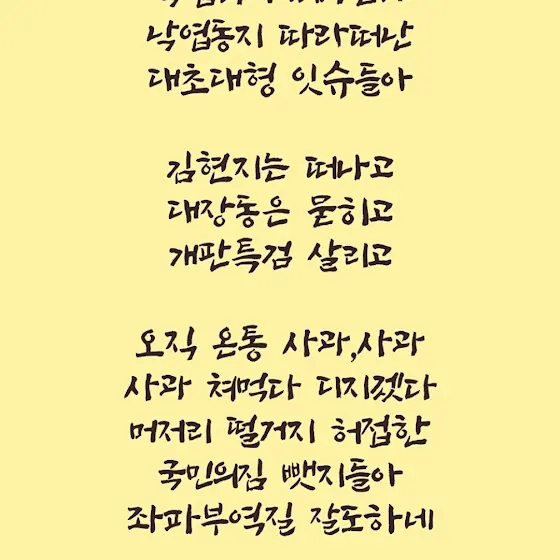 낙엽동지 따라떠난
대초대형 잇슈들아
김현지는 떠나고
대장동은 묻히고
개판특검 살리고
오직 온통 사과,사과
사과 쳐먹다 디지겠다
머저리 떨거지 허접한
국민의짐 뺏지들아
좌파부역질 잘도하네